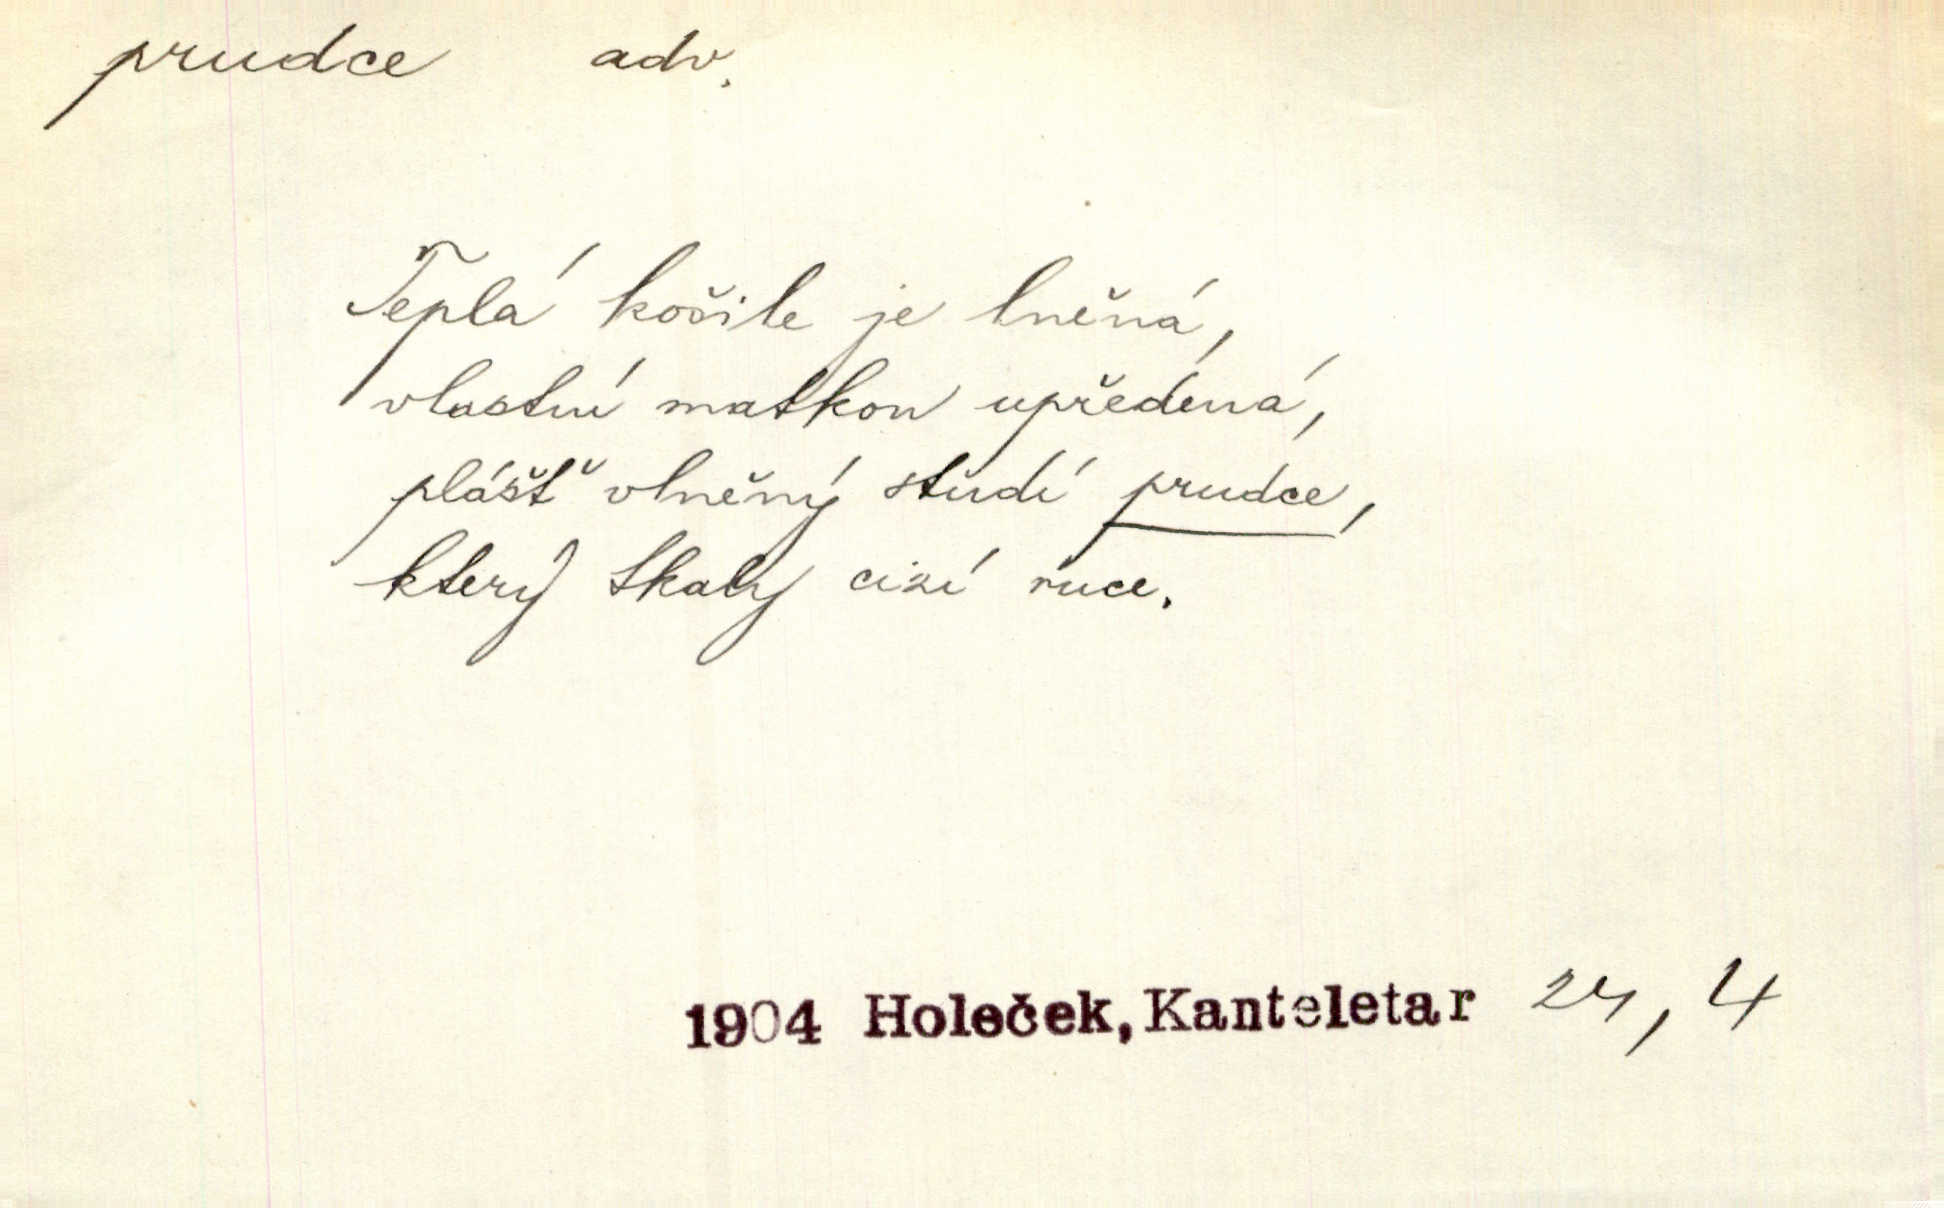 prudce adv.
Teplá košile je lněná,
vlastní matkou upředená,
plášť vlněný studí prudce,
který tkaly cizí ruce.
1904 Holeček, Kanteletar 24, 4